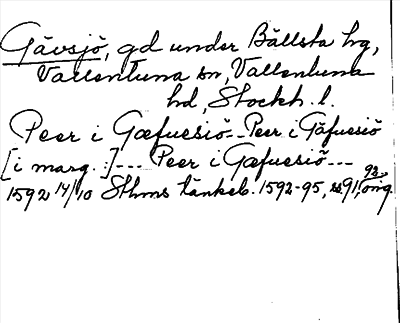 Gävsjö, gd under Bällsta hg,
Vallentuna sn, Vallentuna
hd, Stockh. l.
Peer i Gæfuesiö -- Peer i Gäfuesiö
[i marg.:] --- Peer i Gæfuesiö ---
1592 14/10 Sthms tänkeb. 1592-95, s. 91, 92, orig.